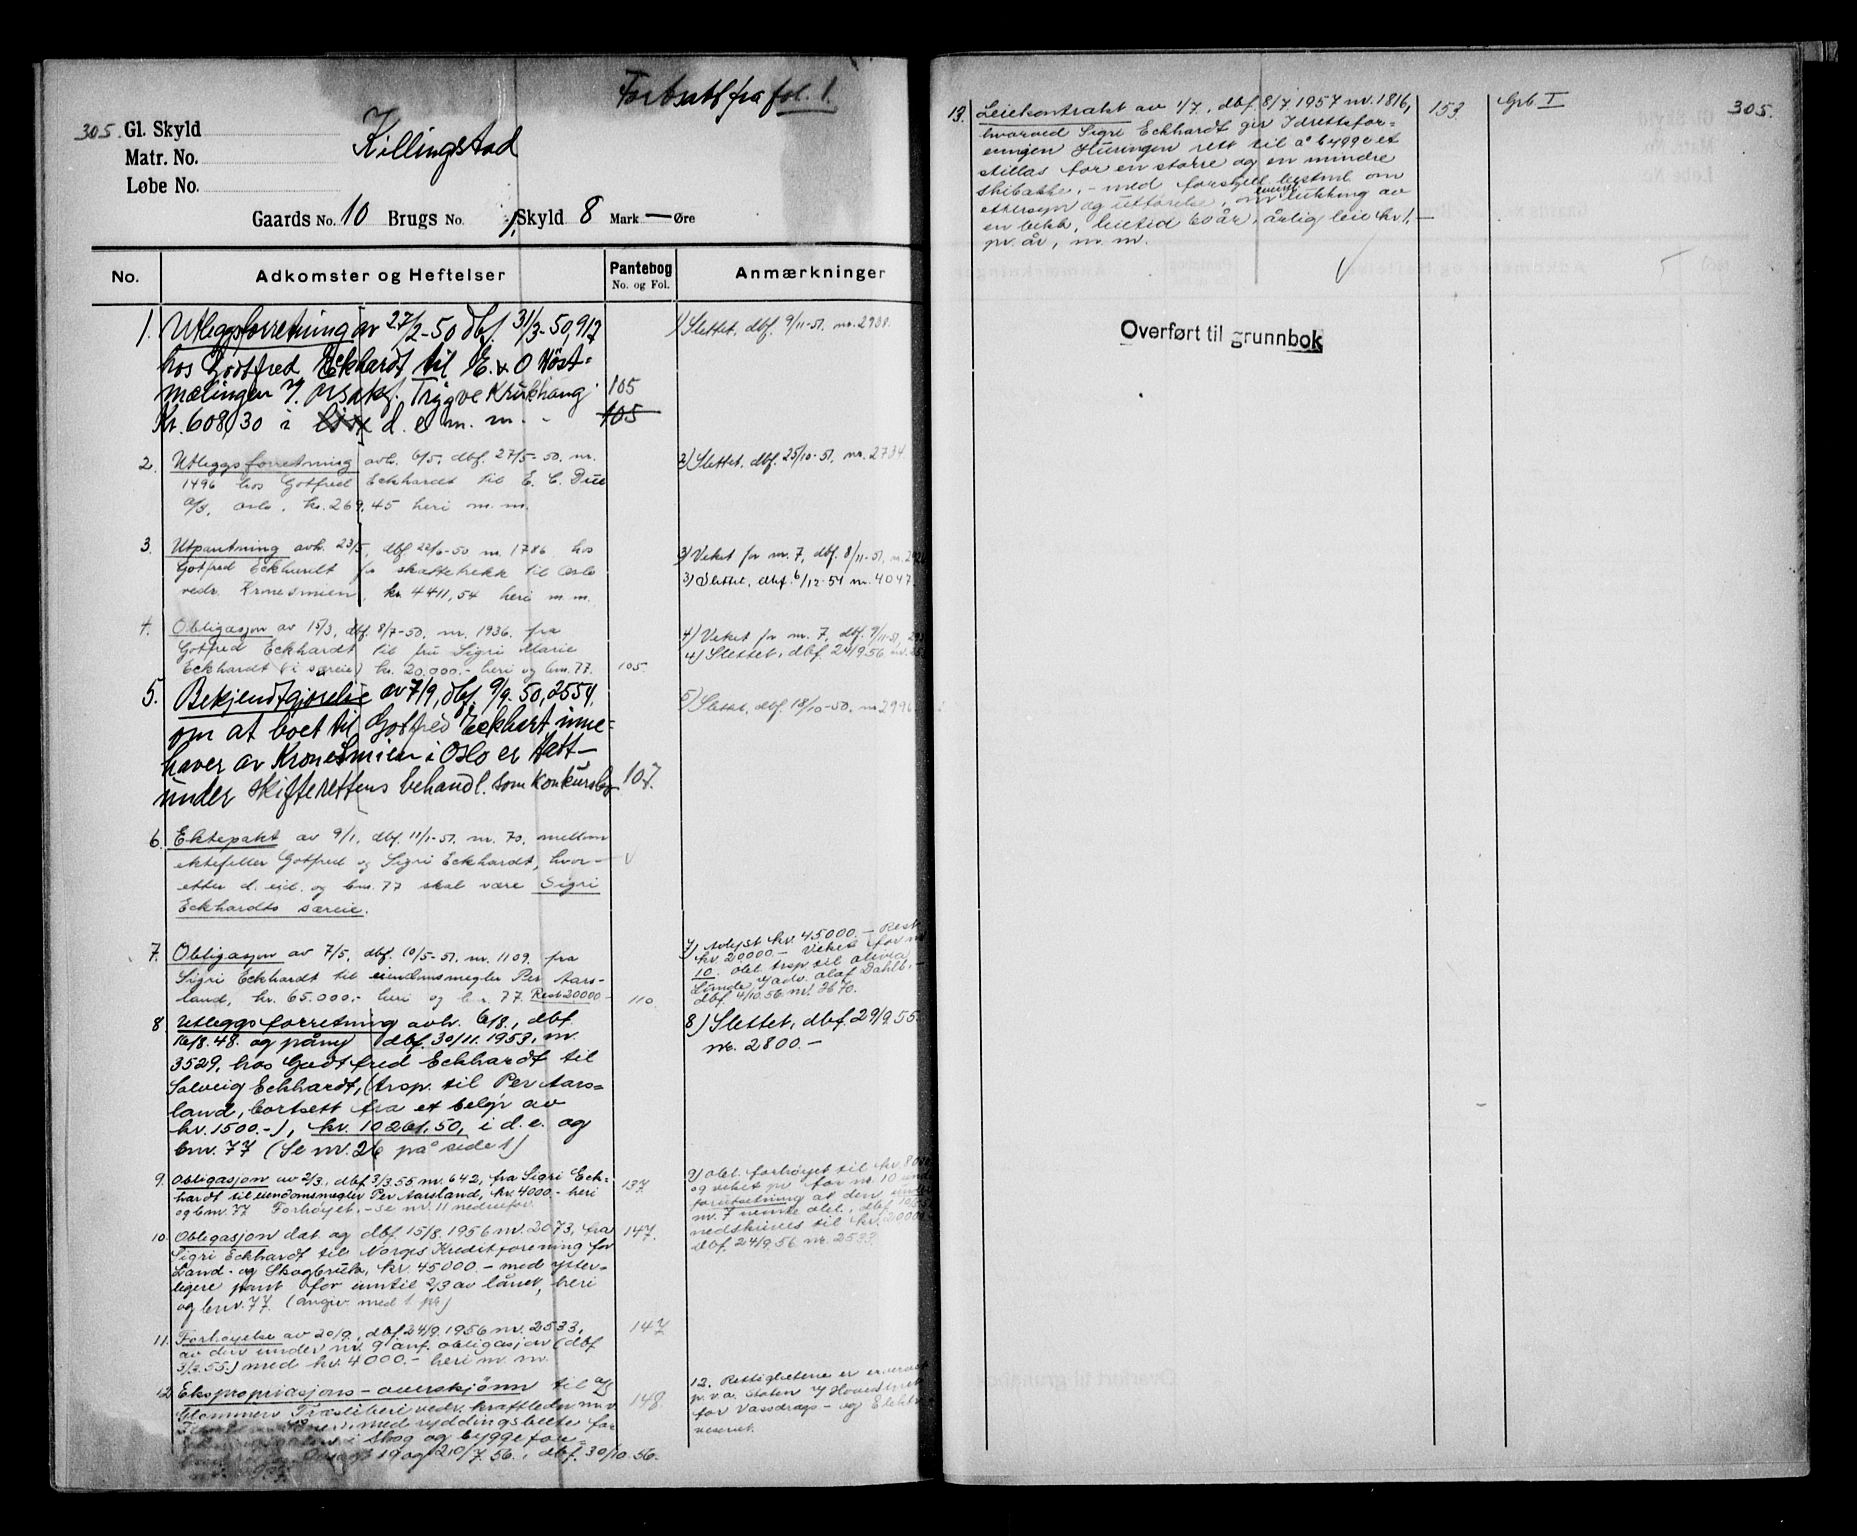 Fortsatt fra fol. 1.
305. Gl. Skyld
Matr. No.
Løbe No.
Killingstad
Gaards No. 10 Brugs No. 1, Skyld 8 Mark — Øre
No. Adkomster og Heftelser Pantebog No. og Fol. Anmærkninger
1. Utleggsforretning av 27/2-50 dbf. 31/3-50, 912
hos Godtfred Eckhardt til E. & O
Kr. 608,30 i d. e. m. m. -
105
105
1) Slettet, dbf. 9/11-51. nr. 2938.
2. Utleggsforretning avh. 6/5, dbf. 27/5-50. nr.
1496 hos Gotfred Eckhardt til E. C. Due
a/s, Oslo, kr. 269,45 heri m. m.
2) Slettet, dbf. 25/10-51, nr. 2734
3. Utpantning avh. 23/5, dbf 22/6-50 nr. 1786 hos
Gotfred Eckhardt for skattetrekk til Oslo
vedr. Kronesmien, kr. 4411,54 heri m. m.
3) Veket for nr. 7, dbf. 8/11-51, nr.
3) Slettet, dbf. 6/12-54 nr. 4047.
4. Obligasjon av 15/3, dbf. 8/7-50, nr. 1936. fra
Gotfred Eckhardt til fru Sigri Marie
Eckhardt (i særeie) kr. 20.000.- heri og bnr. 77.
105.
4) Veket for nr. 7, dbf. 9/11-51,
4) Slettet, dbf. 24/9.56
5. Bekjendtgjørelse av 7/9, dbf. 9/9. 50, 2554,
om at boet til Gotfred Eckhart inne-
haver av Kronesmien i Oslo er tatt
under skifterettens behandl. som konkursbo
107.
5) Slettet, dbf. 18/10-50, nr 2996
6. Ektepakt av 9/1, dbf. 11/1-51. nr. 70, mellom
ektefeller Gotfred og Sigri Eckhardt, hvor-
etter d. eid. og bnr. 77 skal være Sigri
Eckhardts særeie.
7. Obligasjon av 7/5, dbf. 10/5-51. nr. 1109. fra
Sigri Eckhardt til eiendomsmegler Per Aars-
land, kr. 65.000.- heri og bnr. 77. Rest 20000-
110
7) Avlyst kr. 45000.- Rest
kr. 20000.- Veket for nr
10. obl. trsp. til Olivia
Lunde v/adv. Olaf Dahlb.-
dbf. 4/10.56 nr. 2670.
8 Utleggsforretning avh. 6/8., dbf.
16/8.48. og påny dbf. 30/11.1953, nr
3529, hos Godtfred Eckhardt til
Solveig Eckhardt, (trsp. til Per Aars=
land, bortsett fra et beløp av
kr. 1500.-), kr. 10261.50, i d. e. og
bnr. 77 (Se nr. 26 på side 1)
8) Slettet, dbf. 29/9.55
nr. 2800.-
9. Obligasjon av 2/3, dbf. 3/3.55 nr. 642, fra Sigri Eck=
hardt til eiendomsmegler Per Aarsland, kr. 4000.- heri
og bnr. 77 Forhøyet.- se nr. 11 nedenfor.
137
9) obl. forhøyet til kr. 8000
og veket pr. for nr. 10 under
forutsetning at den under
nr. 7 nevnte obl., dbf.
nedskrives til kr. 20000.
dbf. 24/9.56 nr. 2533.
10. Obligasjon dat. og dbf. 15/8.1956 nr. 2073, fra
Sigri Eckhardt til Norges Kreditforening for
Land- og Skogbruk, kr. 45000.- med ytter-
ligere pant for inntil 2/3 av lånet, heri
og bnr. 77. (angiv. med 1. pr.)
147.
11. Forhøyelse av 20/9., dbf. 24/9.1956 nr. 2533,
av den under nr. 9 anf. obligasjon (dbf
3/3.55.) med kr. 4000.- heri m. m.
147
12 Ekspropriasjons-overskjønn til a/s
Glommens Træsliberi vedr. kraftledn. m.v.
med ryddingsbelte for
i skog og byggefor=
19 og 20/7.56., dbf. 30/10.56.
148
12. Rettighetene er
p.v.a. staten v/Hovedstyret
for Vassdrags- og Elektr
vesenet.
13. Leiekontrakt av 1/7, dbf. 8/7 1957 nr. 1816,
hvorved Sigri Eckhardt gir Idrettsfor-
eningen Huringen rett til å bygge et
stillas for en større og en mindre
skibakke, - med forskjell. bestml. om
ettersyn og utførelse, om event. lukking av
en bekk, leietid 60 år, årlig leie kr. 1,—
pr. år, m. m.
153
Grb. I
305.
Overført til grunnbok